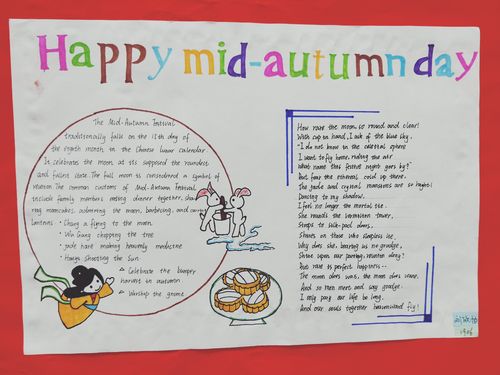 Happy mid-autumn day
The Mid-Autumn Festival
traditionally falls on the 15th day of
the eighth month in the Chinese lunar calendar
It celebrates the moon at its supposed the roundest
and fullest state. The full moon is considered a symbol of
reunion. The common customs of Mid-Autumn Festival
include family members eating dinner together, sha
ring mooncakes, admiring the moon, barbecuing, and carrying
lanterns
· Chang e flying to the moon
· Wu Gang chopping the tree
· jade hare making heavenly medicine
· Houyi Shooting the Sun
△ Celebrate the bumper
harvest in autumn
△ Worship the
How rare the moon is round and clear!
With cup in hand, I ask of the blue sky,
"I do not know in the celestial sphere
What name this festive night goes by?"
I want to fly home, riding the air
But fear the ethereal cold up there,
The jade and crystal mansions are so high!
Dancing to my shadow,
I feel no longer the mortal tie.
She rounds the vermilion tower,
Stoops to silk-pad doors,
Shines on those who sleepless lie,
Why does she, bearing us no grudge,
Shine upon our parting, reunion deny?
But rare is perfect happiness--
The moon does wax, the moon does wane,
And so men meet and say goodbye.
I only pray our life be long,
And our souls together heavenward fly!
1906